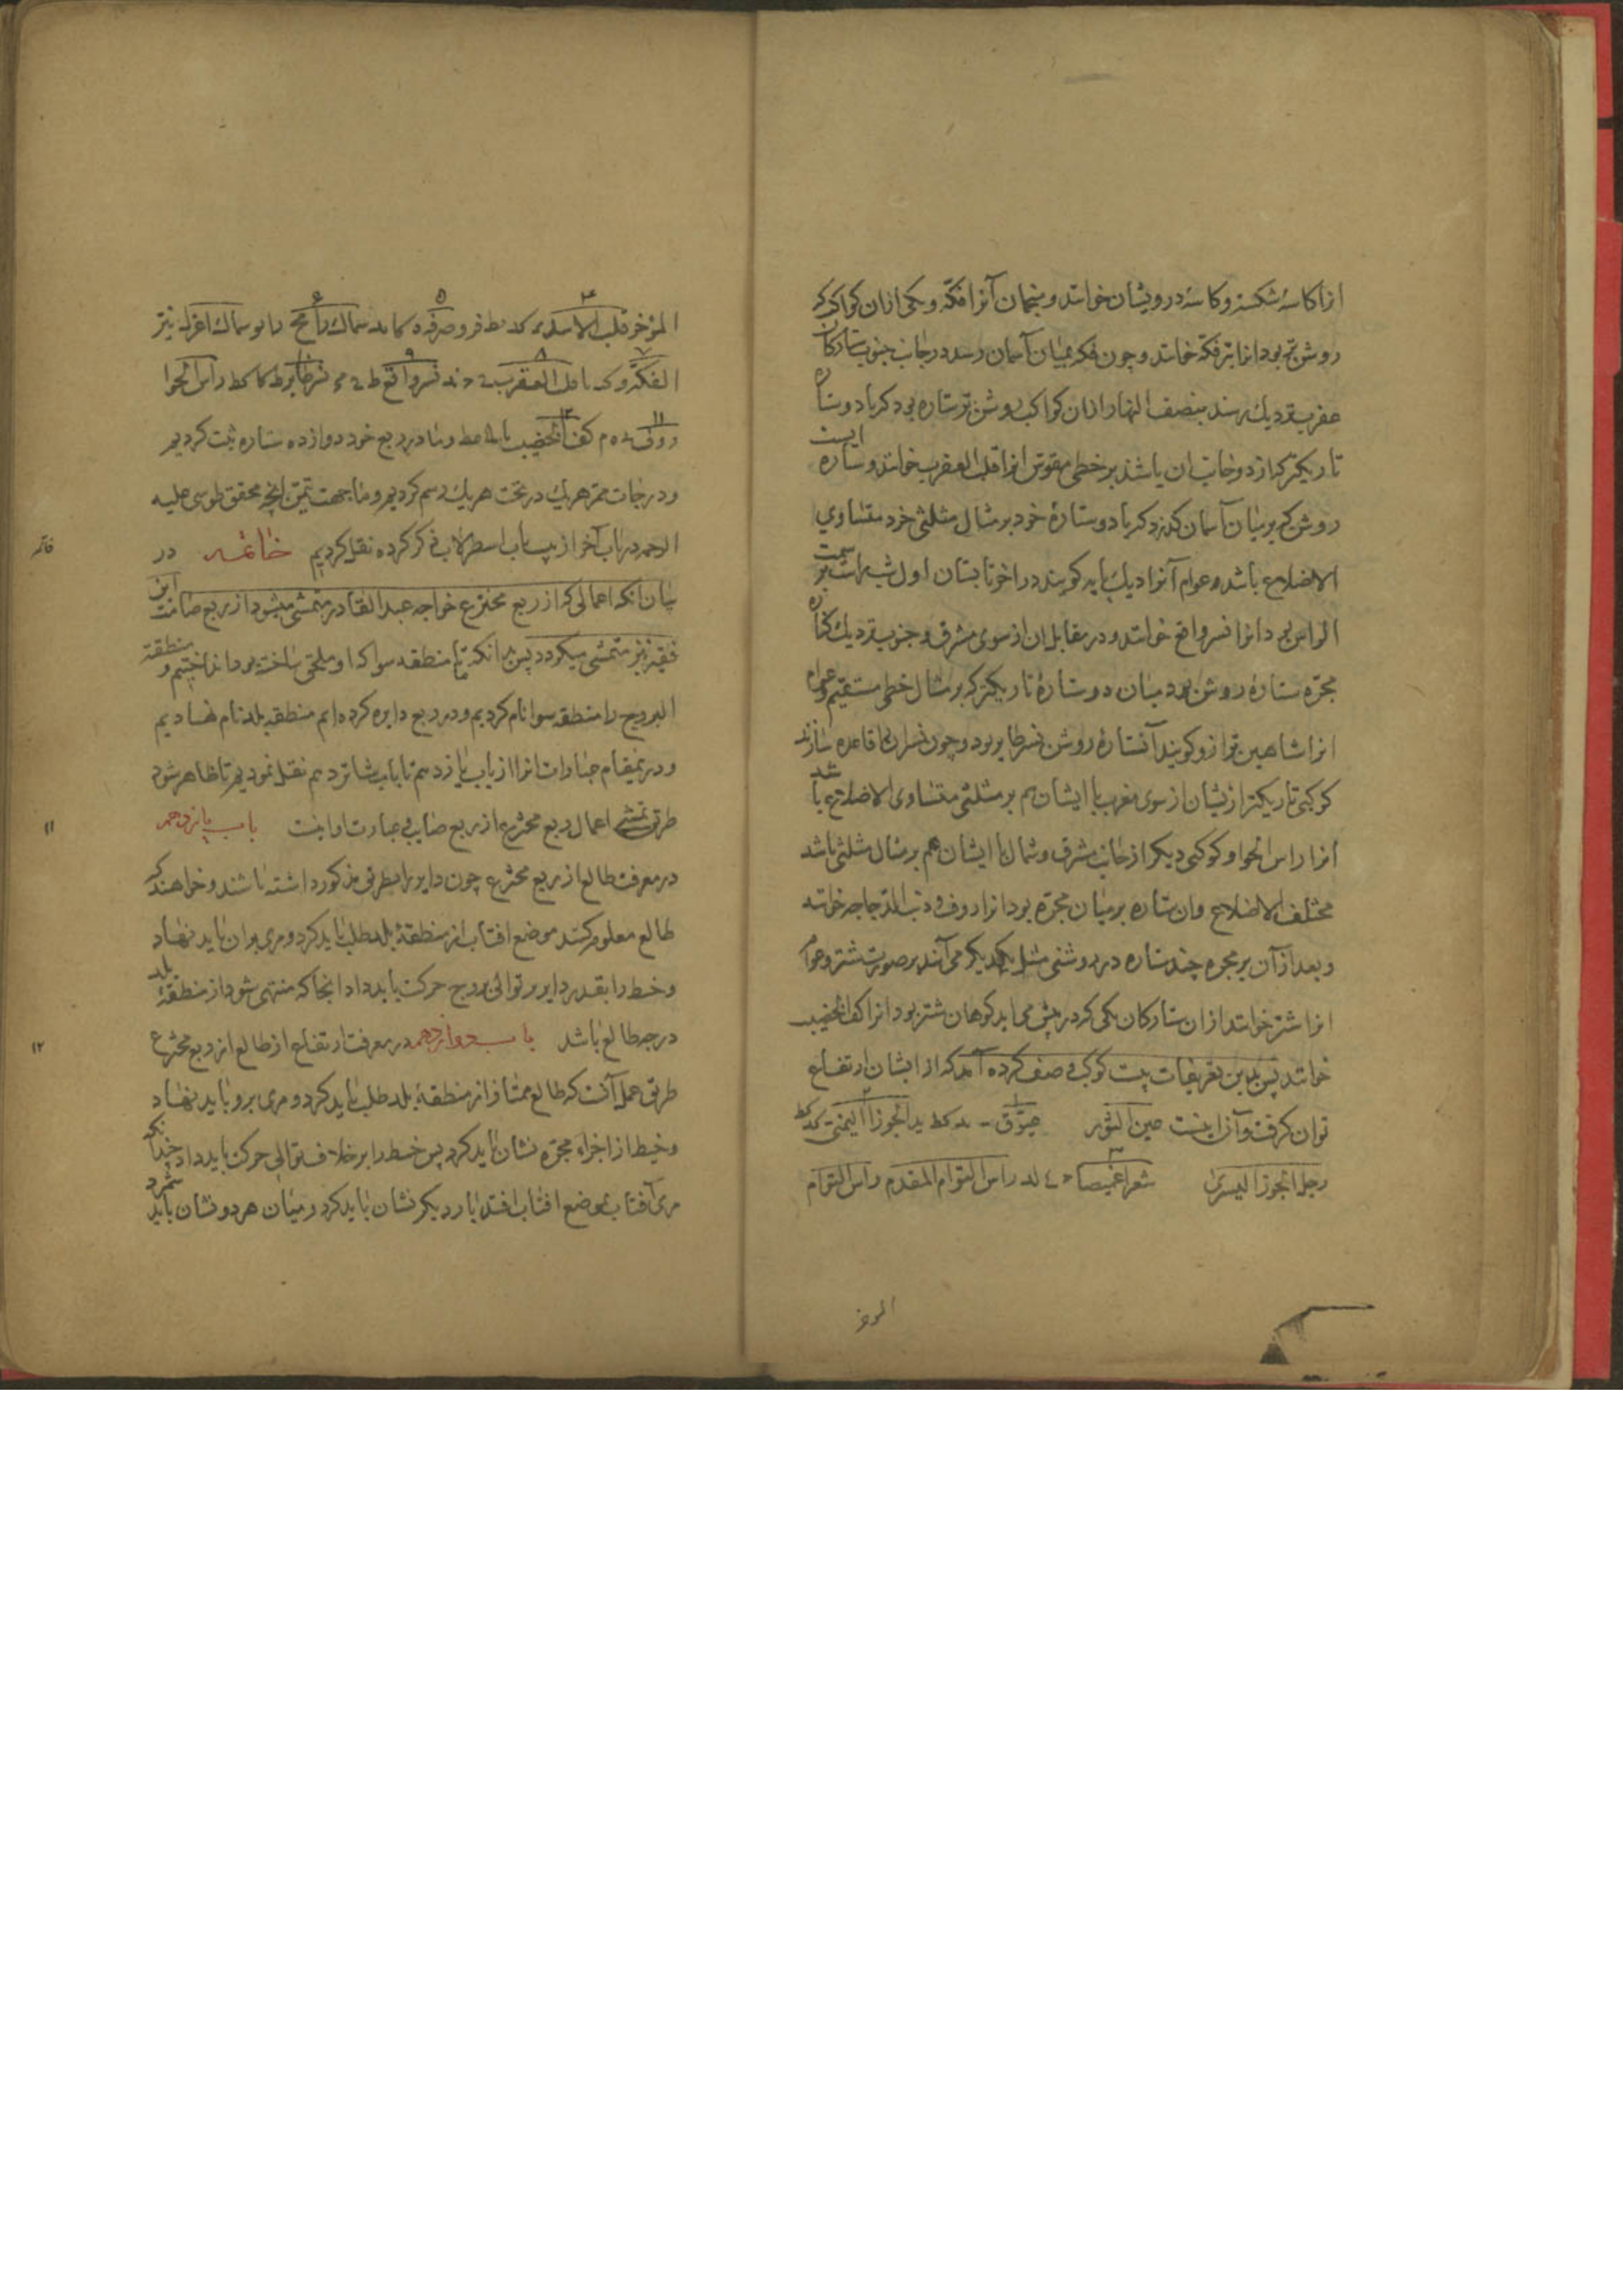 انرا کاسهٔ شکسته و کاسهٔ درویشان خوانند و منجمان آنرا فکّه و یکی ازان کواکب که
روشن‌تر بود انرا نیر فکه خوانند و چون فکه بمیان آسمان رسد در جانب جنوب ستارکان
عقرب نزدیک رسند بنصف النهار و ازان کواکب روشن‌تر ستاره بود که با دو ستاره
تاریکتر که از دو جانب ان باشند بر خطی مقوس انرا قلب العقرب خوانند و ستاره ایست
روشن که بر میان آسمان کذرد که با دو ستارهٔ خرد بر مثال مثلثی خرد متساوی
الاضلاع باشد و عوام آنرا دیک پایه کویند در اخر تابستان اول شب بر سمت
الراس بود انرا نسر واقع خوانند و در مقابل ان از سوی مشرق و جنوب نزدیک کناره
مجرّه ستارهٔ روشن بود میان دو ستارهٔ تاریکتر که بر مثال خطی مستقیم و عوام
انرا شاهین ترازو کویند آن ستارهٔ روشن نسر طایر بود و چون نسران را قاعده سازند
کوکبی تاریکتر ازیشان از سوی مغرب با ایشان هم بر مثلثی متساوی الاضلاع باشد
انرا راس الحوا و کوکبی دیکر از جانب مشرق و شمال با ایشان هم بر مثال مثلثی باشد
مختلف الاضلاع وان ستاره بر میان مجرّه بود انرا ردف و ذنب الدّجاجه خوانند
و بعد از آن بر مجره چند ستاره در روشنی مثل یکدیکر می آیند بر صورت شتر و عوام
انرا شتر خوانند ازان ستارکان یکی که در پیش می اید کوهان شتر بود انرا کف الخضیب
خوانند پس بدین تعریفات بیست کوکب وصف کرده آمد که از ایشان ارتفاع
توان کرفت و آن اینست عین الثور ۱ عیّوق ـ ند کط ۲ ید الجوزا الیمنی کد کط
رجل الجوزا الیسری ۳ شعرا غمیصا لد راس التوام المقدم راس التوام
المؤخر
المؤخر ۴ قلب الاسد کد نط فرد ۵ صرفه ۶ سماک رامح سماک اعزل نیّر
الفکّه ۷ ۸ قلب العقرب ۹ نسر واقع ۱۰ نسر طایر راس الحوا
۱۱ ردف ۱۲ کف الخضیب و ما در ربع خود دوازده ستاره ثبت کردیم
و درجات ممر هر یک در تحت هر یک رسم کردیم و ما جهت تیمّن انچه محقق طوسی علیه
الرحمه در باب آخر از بیست باب اسطرلاب ذکر کرده نقل کردیم خاتمه در
خاتمه
بیان انکه اعمالی که از ربع مخترع خواجه عبد القادر متمشی میشود از ربع صنایت این
فقیر نیز متمشی میکردد پس بدانکه ما منطقه سوا که او ملحق ساخته بود انداختیم و منطقة
البروج را منطقه سوا نام کردیم و در ربع دایره کرده‌ایم منطقه بلد نام نهادیم
و درینمقام عبارات انرا از باب یازدهم تا باب شانزدهم نقل نمودیم تا ظاهر شود
طریق تمشی اعمال ربع مخترع از ربع ما بی عبارت او اینست باب یازدهم
۱۱
در معرفت طالع از ربع مخترع چون دایر را بطریق مذکور دانسته باشند و خواهند که
طالع معلوم کنند موضع افتاب از منطقهٔ بلد طلب باید کرد و مری بران باید نهاد
و خیط را بقدر دایر بر توالی بروج حرکت باید داد انجا که منتهی شود از منطقهٔ بلد
درجه طالع باشد باب دوازدهم در معرفت ارتفاع از طالع از ربع مخترع
۱۲
طریق عمل آنست که طالع ممتاز از منطقهٔ بلد طلب باید کرد و مری برو باید نهاد
و خیط از اجزاء مجرّه نشان باید کرد پس خیط را بر خلاف توالی حرکت باید داد چندانکه
مری آفتاب بموضع افتاب افتد بار دیکر نشان باید کرد و میان هر دو نشان باید شمرد